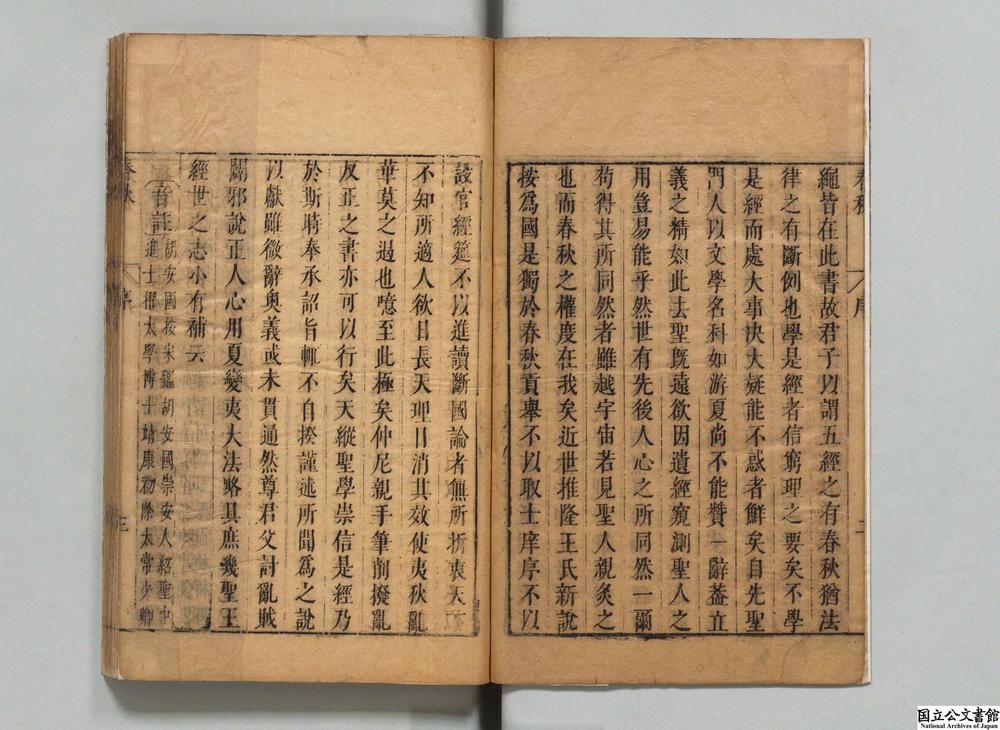 春秋 序 二
繩皆在此書故君子以謂五經之有春秋猶法
律之有斷例也學是經者信窮理之要矣不學
是經而處大事決大疑能不惑者鮮矣自先聖
門人以文學名科如游夏尚不能贊一辭蓋立
義之精如此去聖既遠欲因遺經窺測聖人之
用豈易能乎然世有先後人心之所同然一爾
苟得其所同然者雖越宇宙若見聖人親炙之
也而春秋之權度在我矣近世推隆王氏新說
按爲國是獨於春秋貢舉不以取士庠序不以
設官經筵不以進讀斷國論者無所折衷天下
不知所適人欲日長天理日消其效使夷狄亂
華莫之遏也噫至此極矣仲尼親手筆削撥亂
反正之書亦可以行矣天縱聖學崇信是經乃
於斯時奉承詔旨輒不自揆謹述所聞爲之說
以獻雖微辭奧義或未貫通然尊君父討亂賊
闢邪說正人心用夏變夷大法略具庶幾聖王
經世之志小有補云
音註 胡安國按宋鑑胡安國崇安人紹聖中
進士擢太學博士靖康初除太常少卿
春秋 序 三
国立公文書館
National Archives of Japan